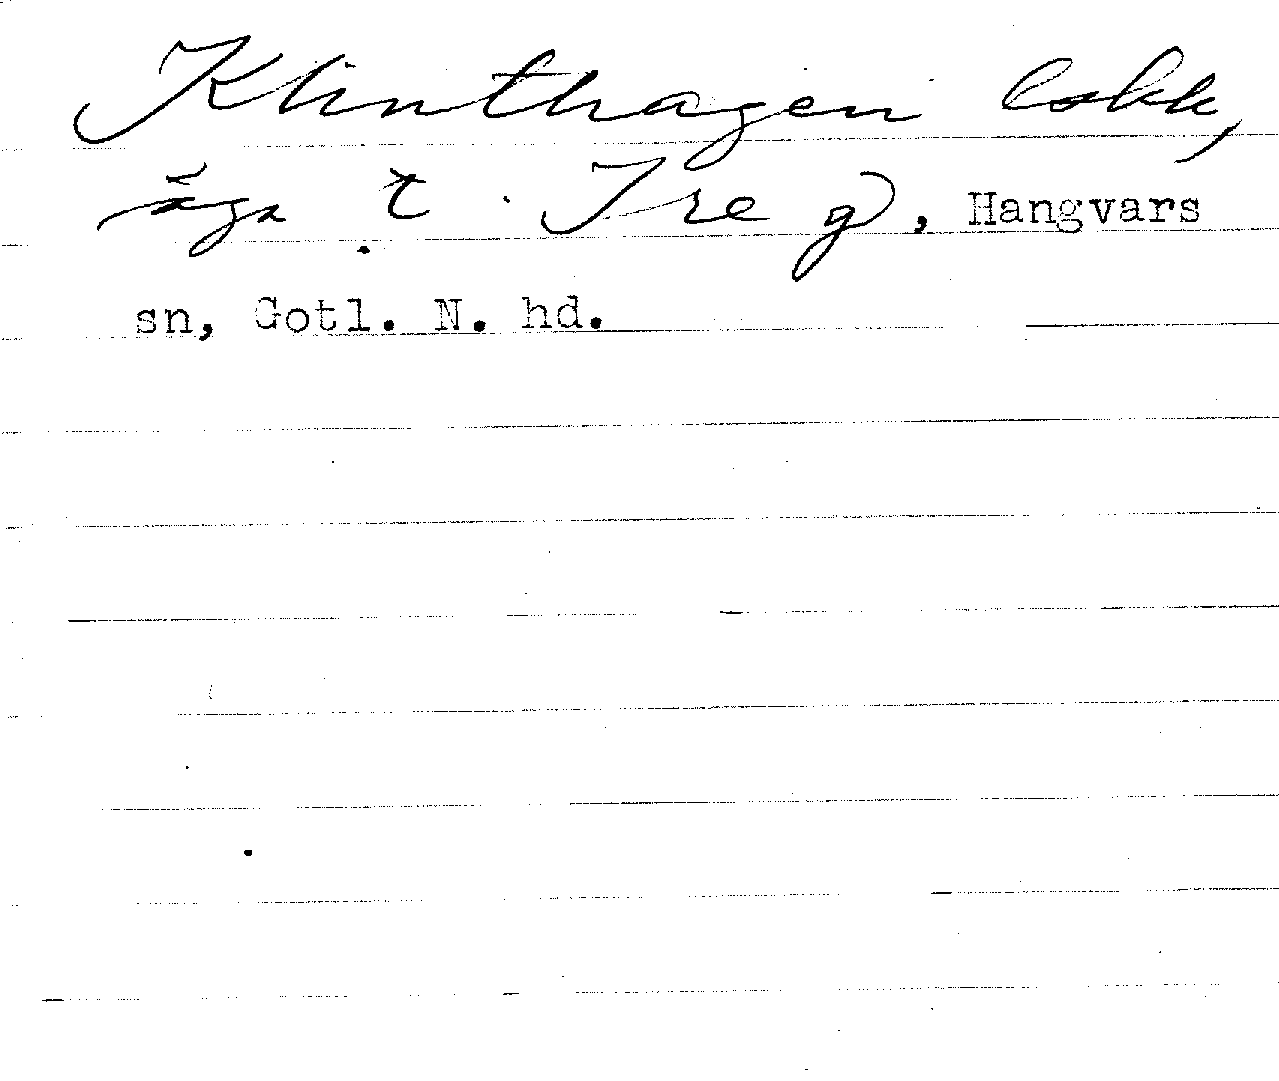 Klinthagen lokk,
äga t. Ire g), Hangvars
sn, Gotl. N. hd.